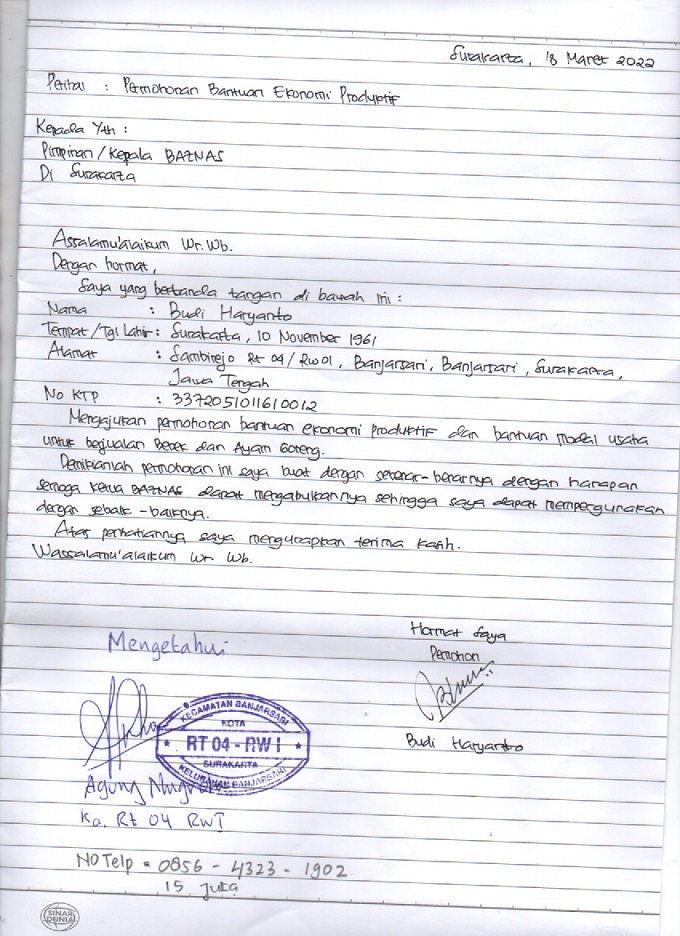 Surakarta, 18 Maret 2022
Perihal : Permohonan Bantuan Ekonomi Produktif
Kepada Yth :
Pimpinan/Kepala BAZNAS
Di Surakarta
Assalamu'alaikum Wr. Wb.
Dengan hormat,
Saya yang bertanda tangan di bawah ini :
Nama : Budi Haryanto
Tempat/Tgl Lahir : Surakarta, 10 November 1961
Alamat : Sambirejo Rt 04/RW 01, Banjarsari, Banjarsari, Surakarta,
Jawa Tengah
No KTP : 3372051011610012
Mengajukan permohonan bantuan ekonomi produktif dan bantuan modal usaha
untuk berjualan Bebek dan Ayam Goreng.
Demikianlah permohonan ini saya buat dengan sebenar-benarnya dengan harapan
semoga Ketua BAZNAS dapat mengabulkannya sehingga saya dapat mempergunakan
dengan sebaik-baiknya.
Atas perhatiannya saya mengucapkan terima kasih.
Wassalamu'alaikum Wr. Wb.
Hormat Saya
Mengetahui
Pemohon
KECAMATAN BANJARSARI
KOTA
RT 04 - RW I
SURAKARTA
KELURAHAN BANJARSARI
Budi Haryanto
Agung
Ka. Rt 04 RW I
NO Telp = 0856 - 4323 - 1902
15 Juta
SINAR DUNIA